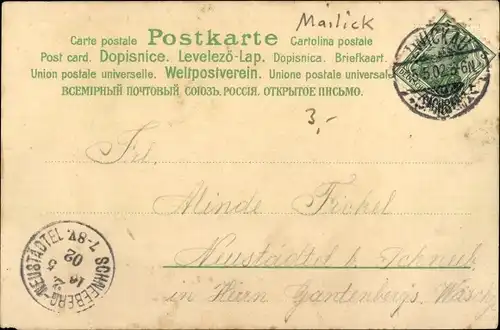 Mailick
Carte postale Postkarte Cartolina postale
Post card. Dopisnice. Levelező-Lap. Dopisnica. Briefkaart.
Union postale universelle. Weltpostverein. Unione postale universale
ВСЕМІРНЫЙ ПОЧТОВЫЙ СОЮЗЪ. РОССІЯ. ОТКРЫТОЕ ПИСЬМО.
ZWICKAU
5.02
3,-
Frl.
Minde
Neustädtel b. Schneeb
in Herrn Gantenberg's
SCHNEEBERG-NEUSTÄDTEL.
7-8V.
5
02